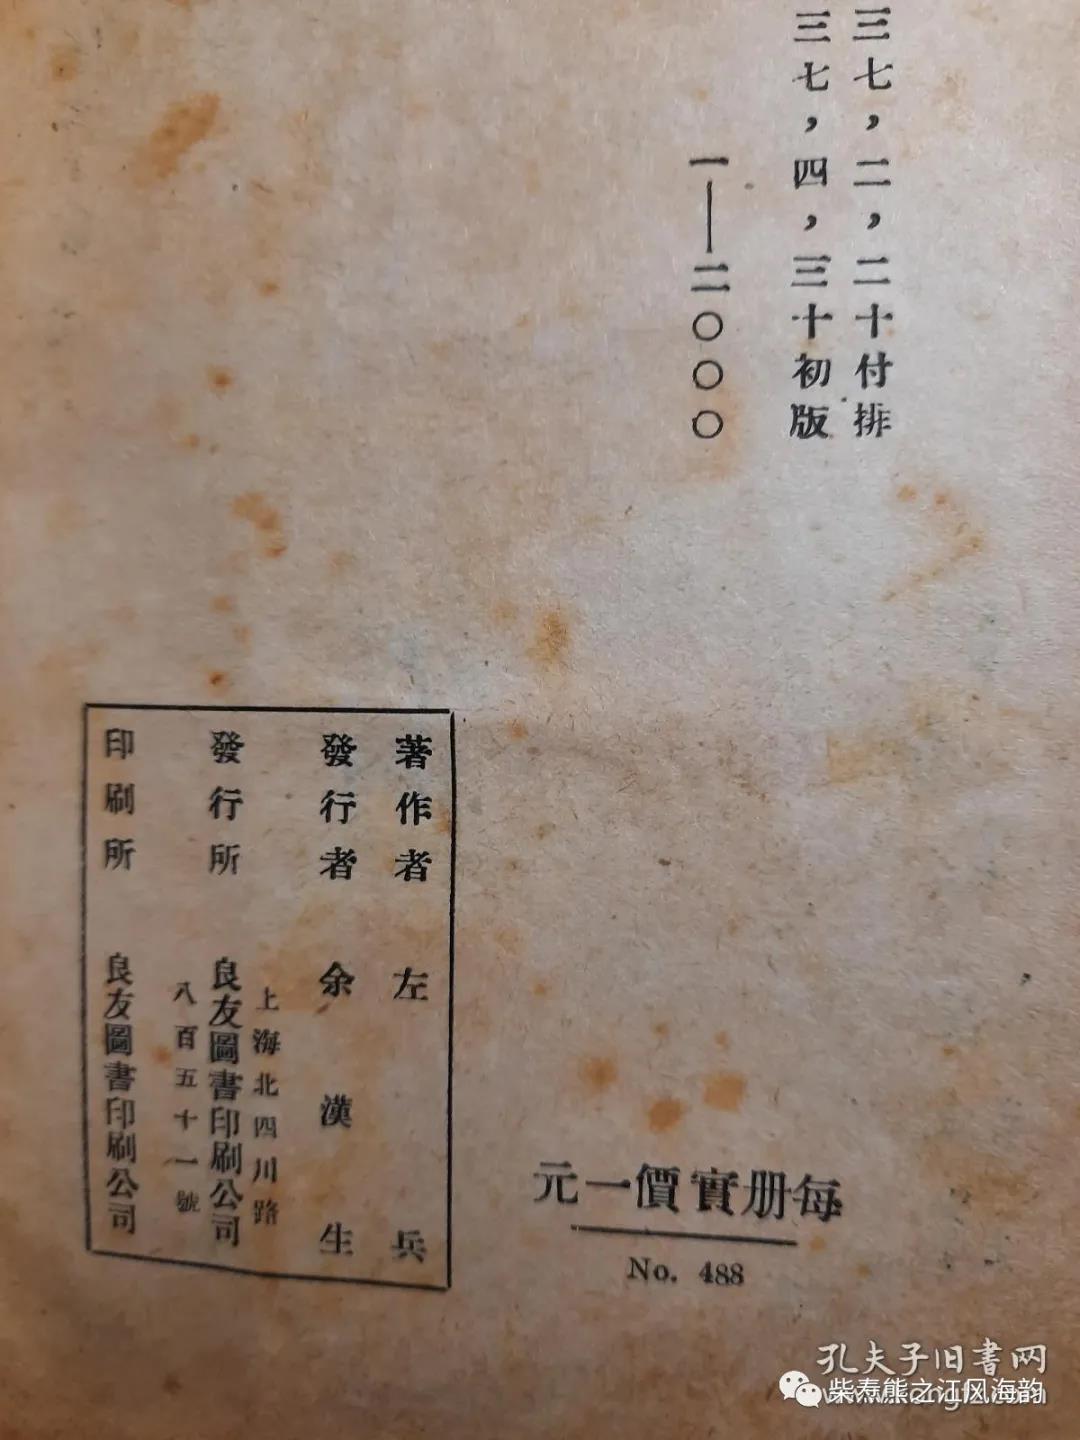 三七，二，二十付排
三七，四，三十初版
一—二〇〇〇
每册實價一元
No. 488
著作者 左兵
發行者 余漢生
上海北四川路
發行所 良友圖書印刷公司
八百五十一號
印刷所 良友圖書印刷公司
孔夫子旧书网
柴寿熊之江风海韵